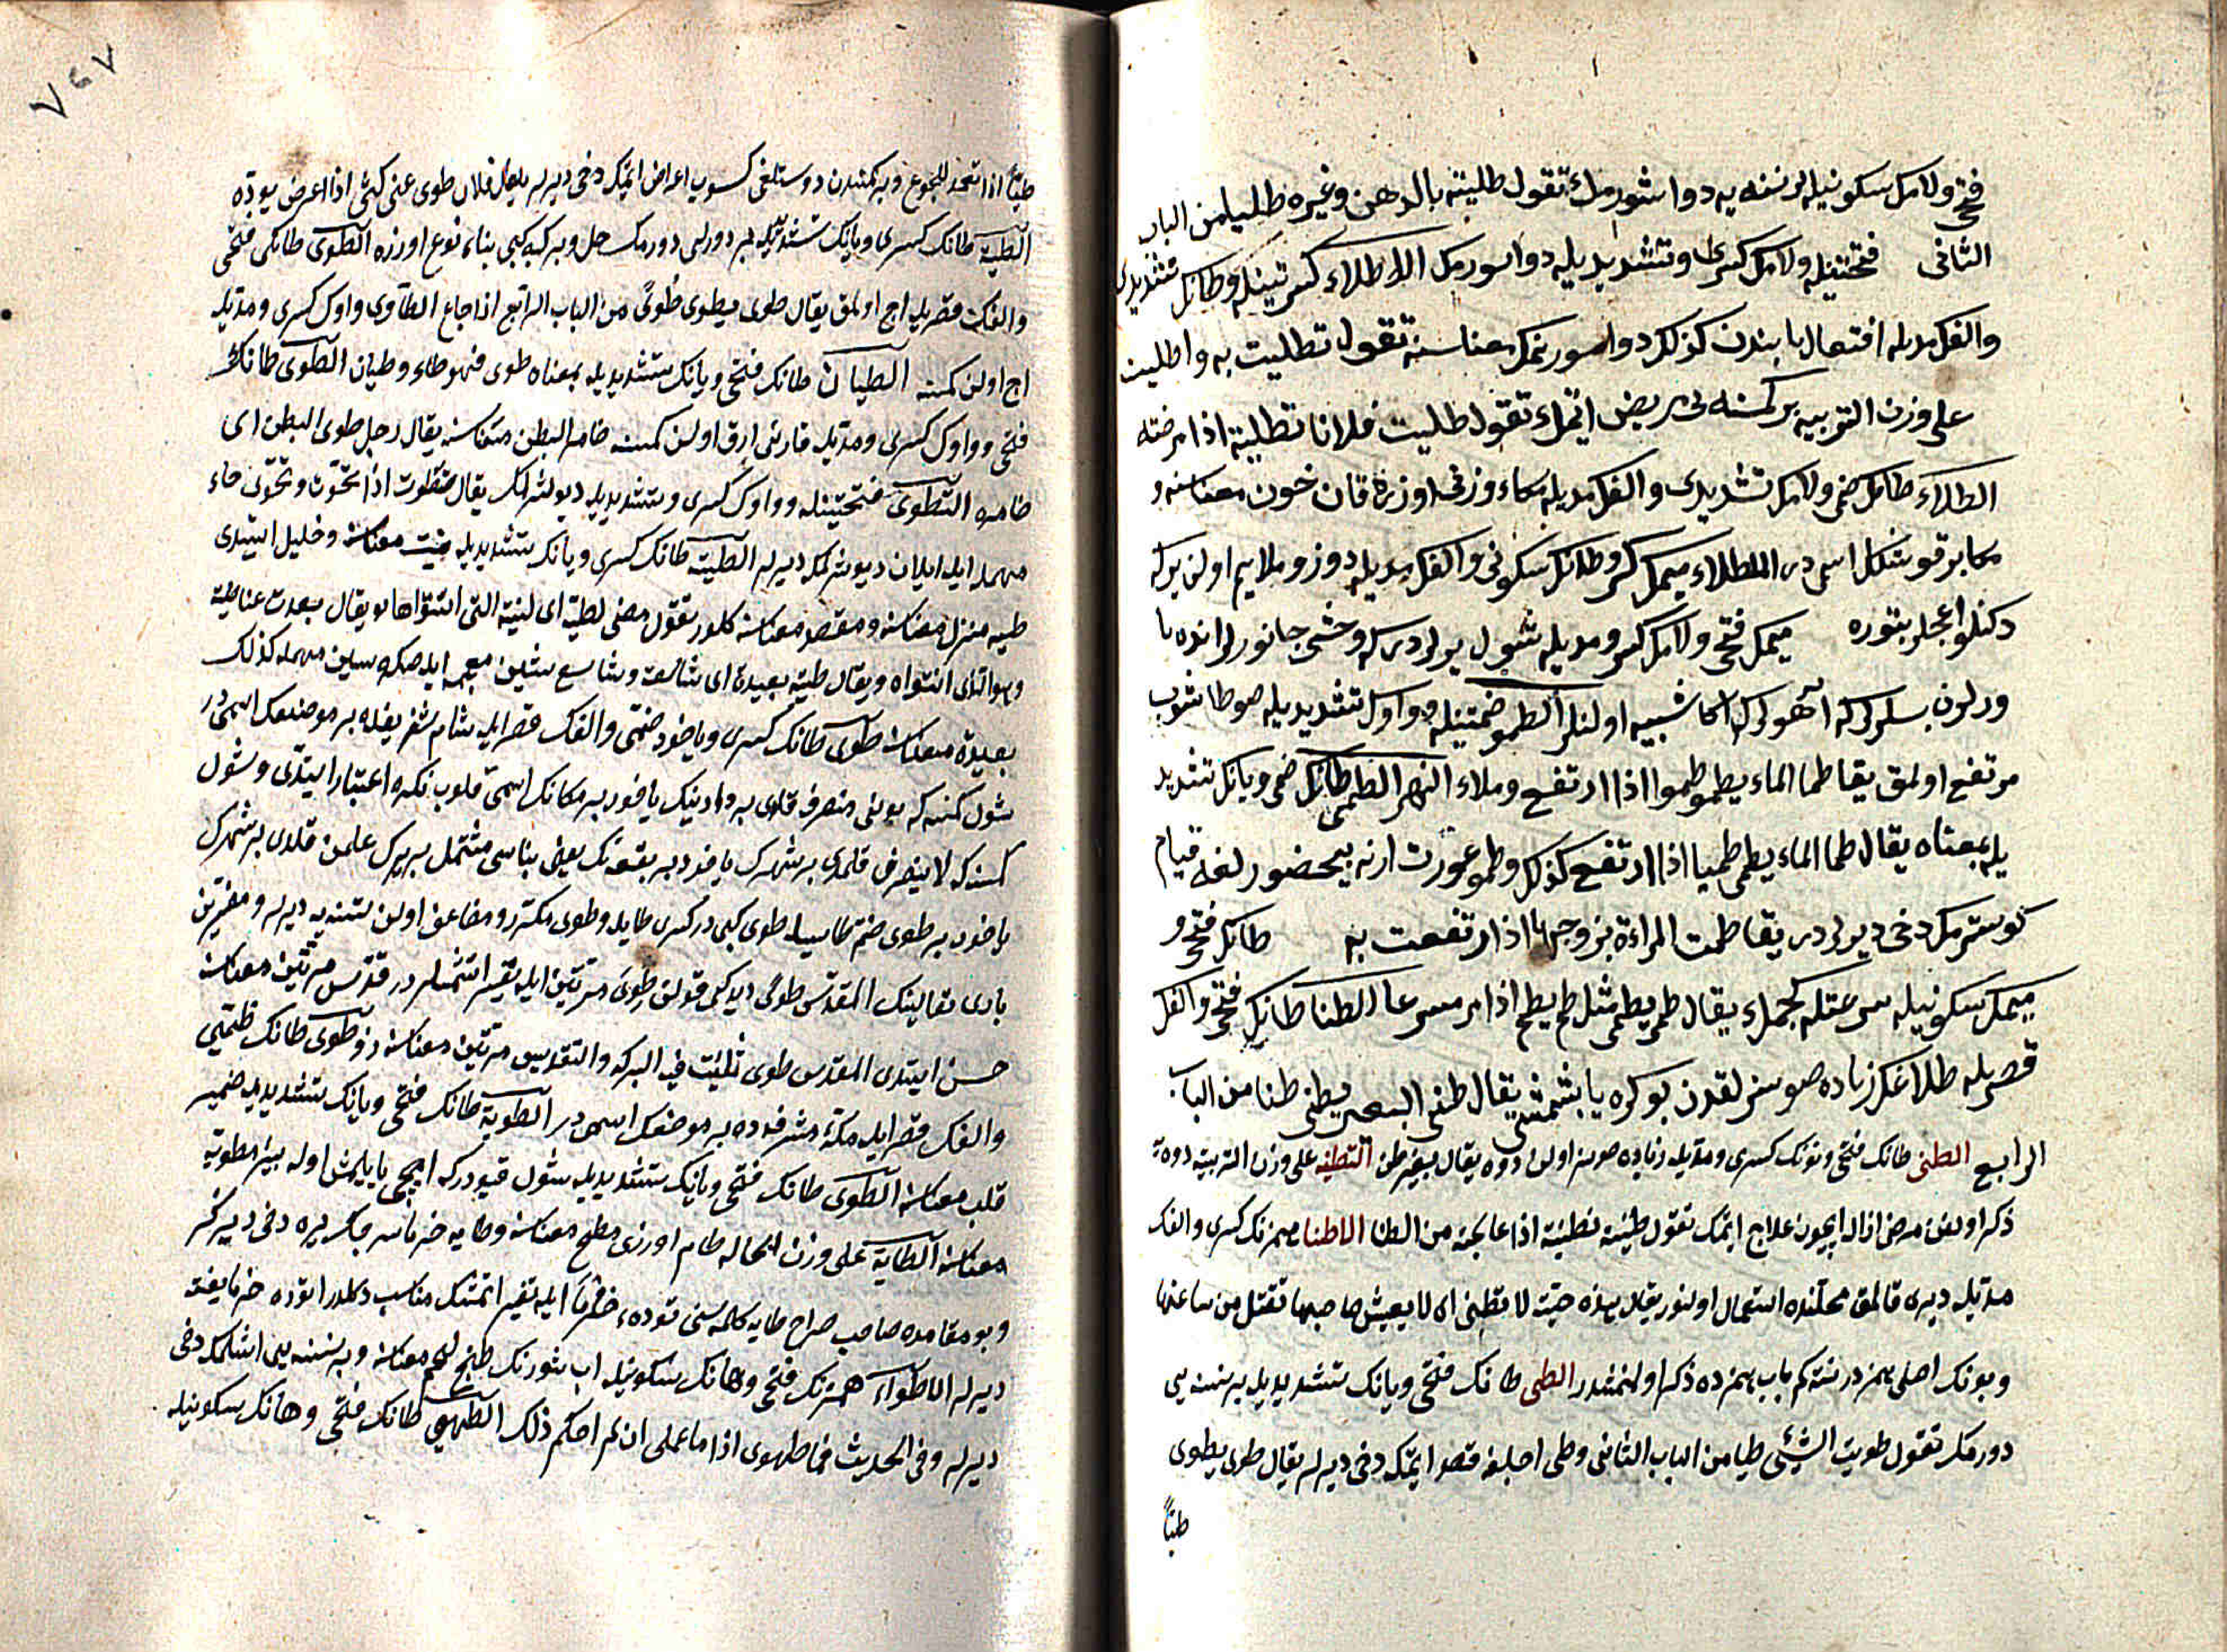 فتحی ولامك سكونیله بر نسنه یه دوا سورمك تقول طلیته بالدهن وغیره طلیا من الباب
الثانی فتحتینله ولامك كسری وتشدیدیله دوا سورمك الاطلاء كسرتینله وطانك تشدیدی
والفك مدیله افتعال بابندن كذلك دوا سورنمك معناسنه تقول تطلیت به واطلیت
علی وزن التربیه بر كمسنه یی مریض ایتمك تقول طلیت فلانا تطلیة اذا مرضته
الطلاء طانك ضمی ولامك تشدیدی والفك مدیله مكاء وزنی اوزره قان خون معناسنه و
مكا بر قوشك اسمیدر الملطاء میمك كسری وطانك سكونی والفك مدیله دوز وملایم اولن یركه
دكنلو اغجلر بتوره میمك فتحی ولامك كسری ومدیله شول یرلردركه وحشی جانورلر انده یا
ورلرن بسلرلركه آهولرك اكا شبیه اولنلر الطمو ضمتینله وواوك تشدیدیله صو طاشوب
مرتفع اولمق یقا طما الماء یطمو طموا اذا ارتفع وملاء النهر الطمی طانك ضمی ویانك تشدید
یله بمعناه یقال طما الماء یطمی طمیا اذا ارتفع كذلك وطمو عورت ارنه بیحضور لغه قیام
كوسترمك دخی دیرلر یقا طمت المراءة بزوجها اذا ارتفعت به طانك فتحی و
میمك سكونیله سرعتله كچمك یقال طمی یطمی مثل طم یطم اذا مر مسرعا الطنا طانك فتحی والفك
قصریله طلاغك زیاده صوسزلقدن بوكره یابشمشی یقال طنی البعیر یطنی طنا من الباب
الرابع الطنی طانك فتحی ونونك كسری ومدیله زیاده صوسز اولن دوه یقال بعیر طن التطنیه علی وزن التربیه دوه
ذكر اولنن مرض ازاله ایچون علاج ایتمك تقول طنیته تطنیة اذا عالجته من الطنا الاطنا همزنك كسری والفك
مدیله دیری قالمق محلنده استعمال اولنور یقال هذه حیة لا تطنی ای لا یعیش صاحبها تقتل من ساعتها
وبونك اصلی همزدر نته كم باب همزه ده ذكر اولنمشدر الطی طانك فتحی ویانك تشدیدیله بر نسنه یی
دورمك تقول طویت الشیٔ طیا من الباب الثانی وطی اجلغه قصد ایتمكه دخی دیرلر یقال طوی یطوی
طیا
٧٤٧
طیا اذا تعمد للجوع وبر كمسندن دوستلغی كسوب اعراض ایتمك دخی دیرلر یقال فلان طوی عنی كشحی اذا اعرض بوده
الطیة طانك كسری ویانك تشدیدیله بر دورلی دورمك جلسه وركبه كبی بناء نوع اوزره الطوی طانك فتحی
والفك قصریله اج اولمق یقال طوی یطوی طوی من الباب الرابع اذا جاع الطاوی واوك كسری ومدیله
اج اولن كمسنه الطیان طانك فتحی ویانك تشدیدیله بمعناه طوی فهو طاو وطیان الطوی طانك
فتحی وواوك كسری ومدیله قارنی ارق اولن كمسنه ضامر البطن معناسنه یقال رجل طوی البطن ای
ضامره التطوی فتحتینله وواوك كسری وتشدیدیله دیوشرلمك یقال تطوت اذا تحوت وتحوی حاء
مهمله ایله ایلان دیوشرنمكه دیرلر الطیة طانك كسری ویانك تشدیدیله نیت معناسنه وخلیل ایتدی
طیه منزل معناسنه ومقصد معناسنه كلور تقول مضی لطیته ای لنیته التی انتواها ویقال بعدت عنا طیته
وهو التی انتواه ویقال طیة بعیدة ای شاسعة وشاسع شین معجمه ایله صكره سین مهمله كذلك
بعیده معناسنه طوی طانك كسری ویاخود ضمی والفك قصر ایله شام شریفده بر موضعك اسمیدر
شول كمسنه كه بونی منصرف قلدی بر وادینك یاخود بر مكانك اسمی قلوب نكره اعتبار ایتدی وشول
كمسنه كه لا ینصرف قلمدی بر شهرك یاخود بر بقعه نك یعنی بناسی مشتمل بر یرك علمن قلدی بر شهرك
یاخود بر طوی ضم طا سیله طوی كبی در كسر طا ایله وطوی مكرر ومضاعف اولن نسنه یه دیرلر ومفسرین
باری تعالینك المقدس طوی دیدكی قولنی طوی مرتین ایله تفسیر ایتمشلر در قدس مرتین معناسنه
حسن ایتدی المقدس طوی ثنیت فیه البركة والتقدیس مرتین معناسنه ذو طوی طانك ضمی
والفك قصر ایله مكهٔ مشرفه ده بر موضعك اسمیدر الطویة طانك فتحی ویانك تشدیدیله ضمیر
قلب معناسنه الطوی طانك فتحی ویانك تشدیدیله شول قیودركه ایچی یاپلمش اوله بیر مطویه
معناسنه الطایة علی وزن الحاله طام اوزری سطح معناسنه وطایه خرمن سریجك یره دخی دیرلر
وبو مقامده صاحب صراح طایه كلمه سنی توده خرما ایله تفسیر ایتمشك مناسب دكلدر توده خرما یغنه
دیرلر الاطواء همزنك فتحی وطانك سكونیله اب شورنك طبخ لحم معناسنه وبر نسنه یی اشلمك دخی
دیرلر وفی الحدیث فما طهوی اذا ما عملی ان لم احكم ذلك الطهی طانك فتحی وهانك سكونیله